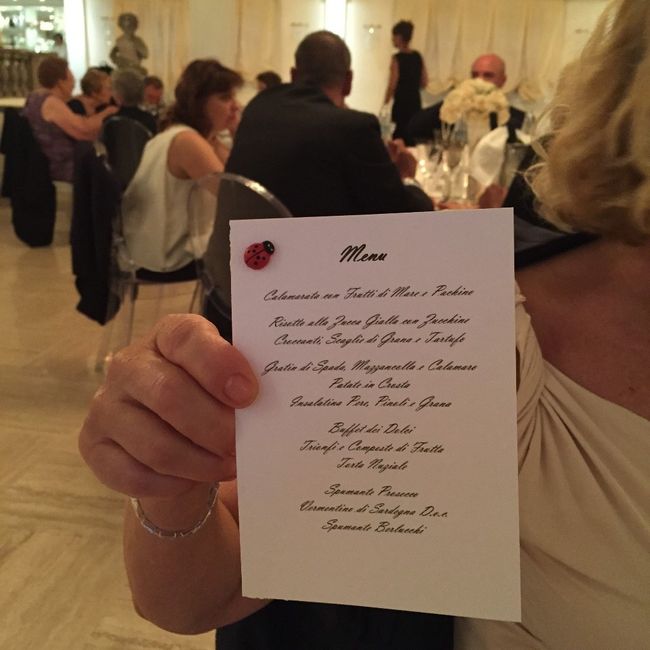 Menu
Calamarata con Frutti di Mare e Pachino
Risotto alla Zucca Gialla con Zucchine
Croccanti, Scaglie di Grana e Tartufo
Gratin di Spada, Mazzancolla e Calamaro
Patate in Crosta
Insalatina Pere, Pinoli e Grana
Buffet dei Dolci
Trionfi e Composte di Frutta
Torta Nuziale
Spumante Prosecco
Vermentino di Sardegna D.o.c.
Spumante Berlucchi